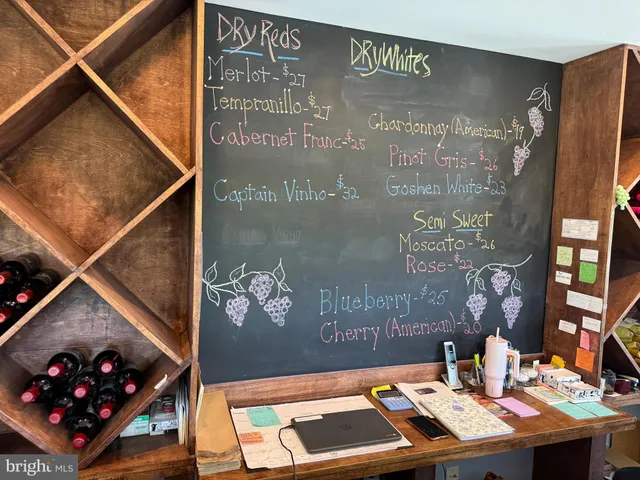 DRy Reds
Merlot - $27
Tempranillo - $27
Cabernet Franc - $25
Captain Vinho - $32
DRyWhites
Chardonnay (American) - $19
Pinot Gris - $26
Goshen White - $23
Semi Sweet
Moscato - $26
Rose - $22
Blueberry - $25
Cherry (American) - $20
bright MLS